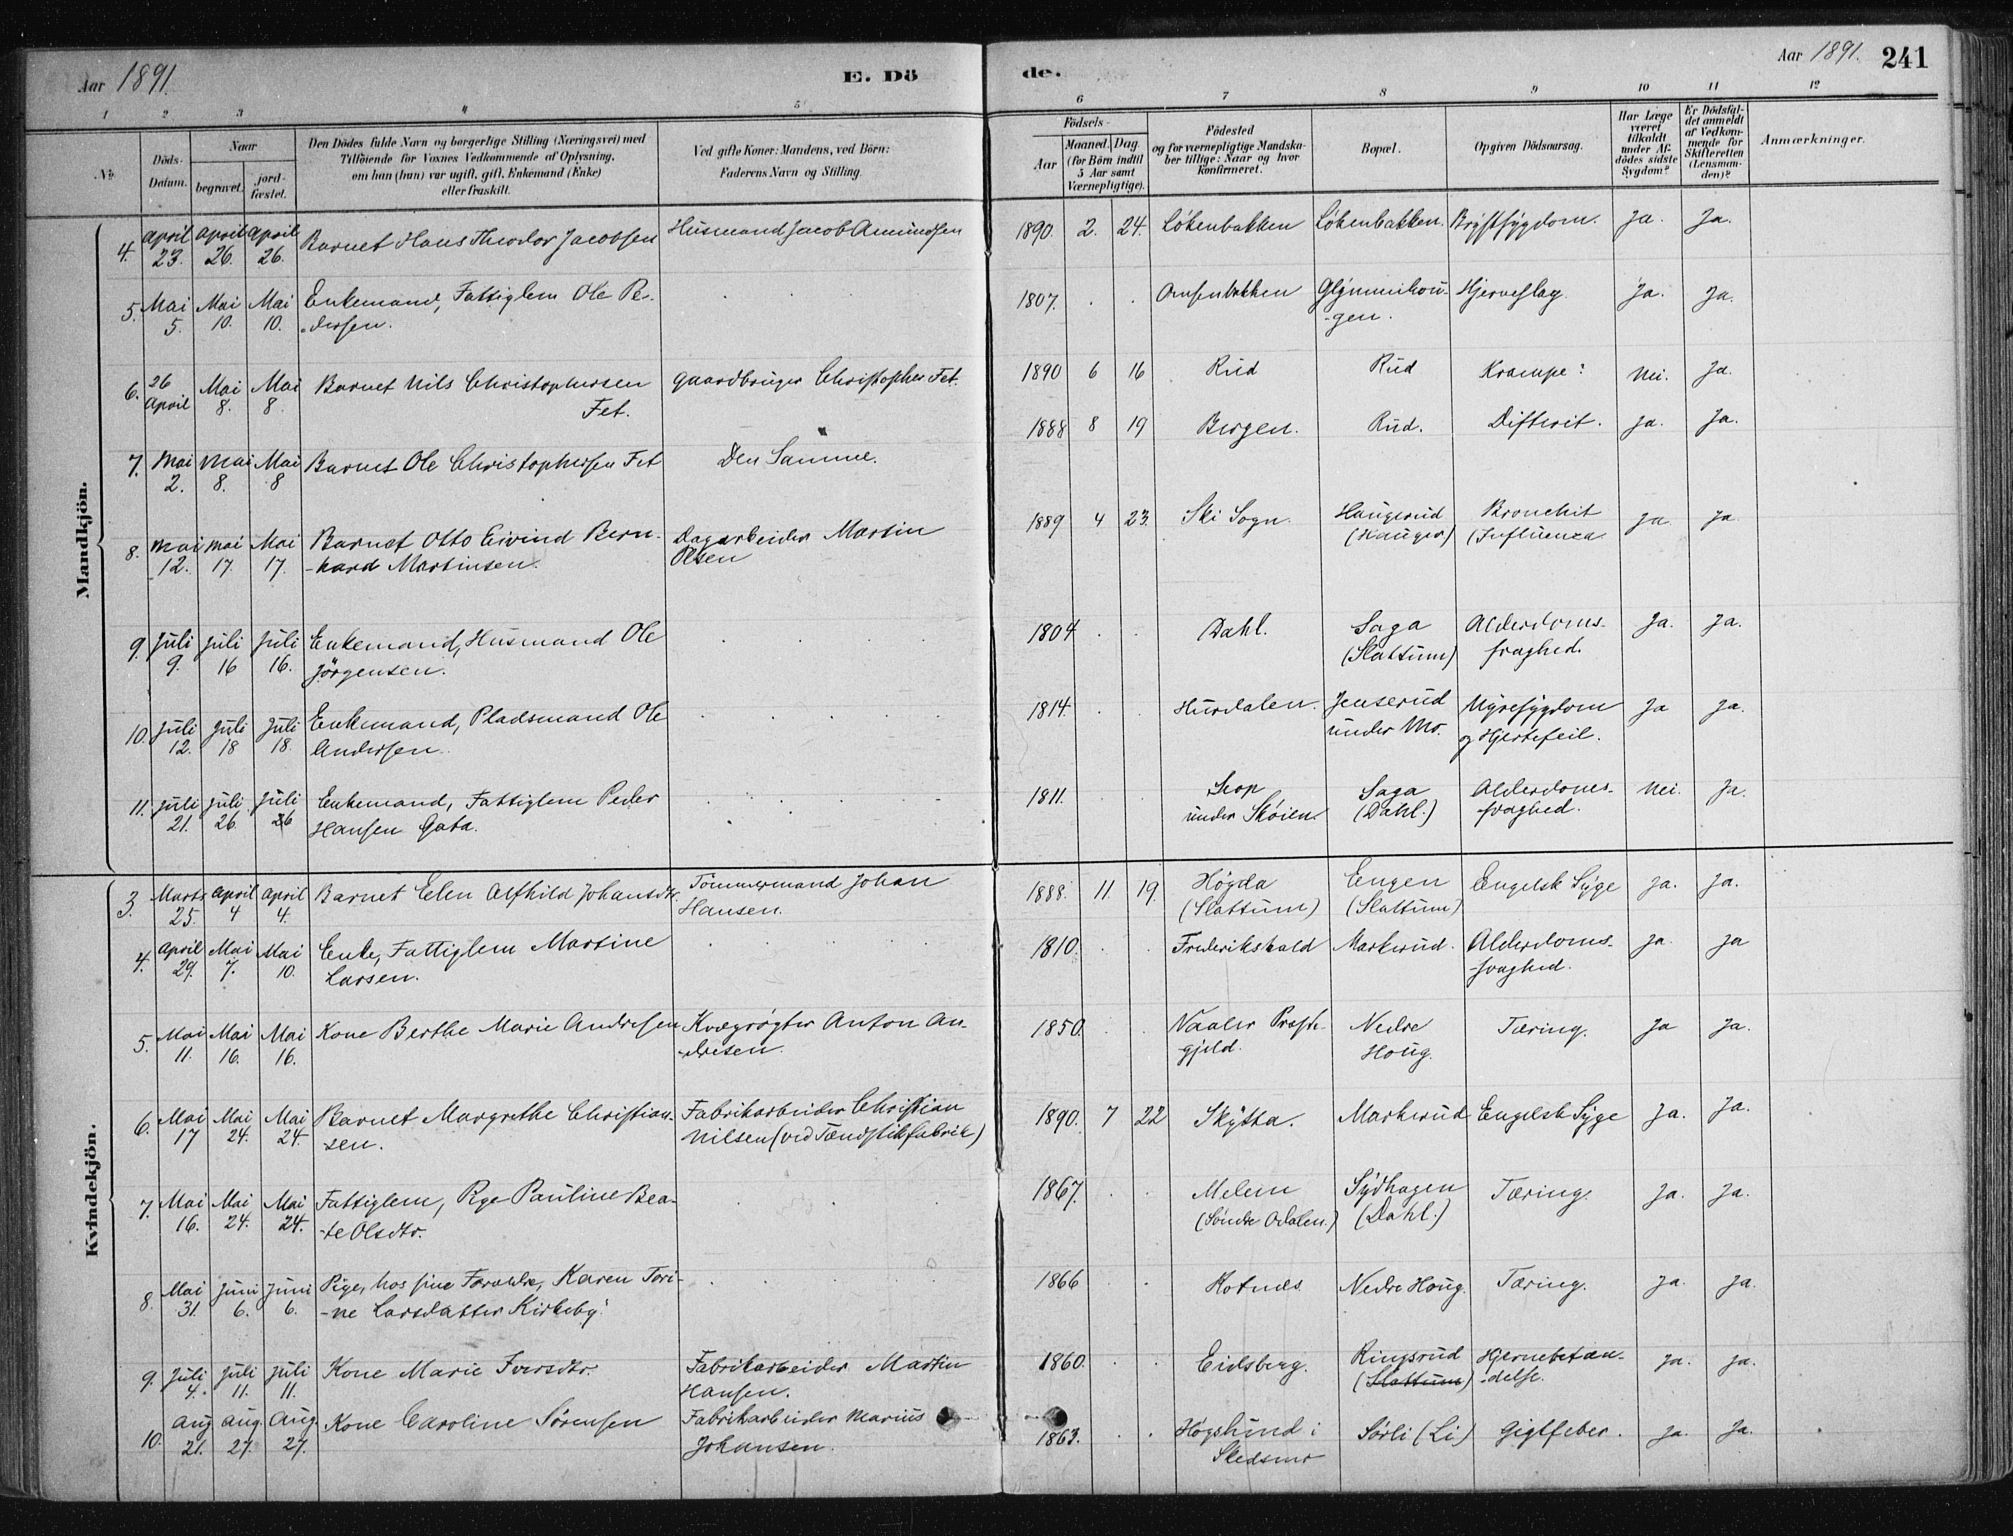 Aar 1891.
E. Dö
de.
Aar 1891.
241
1 2 3 4 5 6 7 8 9 10 11 12
No.
Döds-Datum.
Naar
begravet.
jord-fæstet.
Den Dödes fulde Navn og borgerlige Stilling (Næringsvei) med
Tilföiende for Voxnes Vedkommende af Oplysning,
om han (hun) var ugift, gift, Enkemand (Enke)
eller fraskilt.
Ved gifte Koner: Mandens, ved Börn:
Faderens Navn og Stilling.
Födsels-
Aar
Maaned. Dag
(for Börn indtil
5 Aar samt
Værnepligtige).
Födested
og for værnepligtige Mandska-
ber tillige: Naar og hvor
konfirmeret.
Bopæl.
Opgiven Dödsaarsag.
Har Læge
været
tilkaldt
under Af-
dödes sidste
Sygdom?
Er Dödsfal-
det anmeldt
af Vedkom-
mende for
Skifteretten
(Lensman-
den)?
Anmærkninger.
Mandkjön.
4. April 23. April 26. April 26. Barnet Hans Theodor Jacobsen Husmand Jacob Amundsen 1890. 2. 24. Løkenbakken Løkenbakken. Brystsygdom. Ja. Ja.
5. Mai 5. Mai 10. Mai 10. Enkemand, Fattiglem Ole Pe-
dersen. 1807. Glymmihou-
-gen. Hjerneslag. Ja. Ja.
6. 26 April Mai 8. Mai 8 Barnet Nils Christophersen
Fet. Gaardbruger Christopher Fet. 1890 6 16 Rud Rud Krampe: Nei. Ja.
7. Mai 2. Mai 8. Mai 8 Barnet Ole Christophersen Fet Den Samme. 1888 8 19 Bergen. Rud. Difterit. Ja. Ja.
8. Mai 12. Mai 17. Mai 17. Barnet Otto Eivind Bern-
-hard Martinsen. Dagarbeider Martin
Olsen 1889 4 23. Ski Sogn. Haugerud
(Hauger) Bronchit
(Influenza Ja. Ja
9. Juli 9. Juli 16 Juli 16. Enkemand, Husmand Ole
Jörgensen. 1804. Dahl. Saga
(Slattum) Alderdoms-
svaghed. Ja. Ja.
10. Juli 12. Juli 18 Juli 18. Enkemand, Pladsmand Ole
Andersen. 1814. Hurdalen. Jenserud
under Mo. Nyresygdom
og Hjertefeil. Ja Ja.
11. Juli 21. Juli 26. Juli 26 Enkemand, Fattiglem Peder
Hansen Gata. 1811. under Skøien. Saga
(Dahl.) Alderdoms-
svaghed. Nei. Ja.
Kvindekjön.
3. Marts 25. April 4 April 4. Barnet Elen Alfhild Johansdtr. Tömmermand Johan
Hansen. 1888. 11. 19. Høgda
(Slattum) Engen
(Slattum) Engelsk Syge Ja. Ja.
4. April 29. Mai 7. Mai 10. Enke, Fattiglem Martine
Larsen. 1810. Frederikshald Markerud. Alderdoms-
-svaghed. Ja. Ja
5. Mai 11. Mai 16. Mai 16. Kone Berthe Marie Andresen Kvægrøgter Anton An-
-dresen. 1850. Vaaler Præste-
gjeld. Nedre
Houg. Tæring. Ja Ja.
6. Mai 17 Mai 24. Mai 24. Barnet Margrethe Christian-
sen. Fabrikarbeider Christian
Nilsen (ved Tændstikfabrik) 1890. 7 22 Skytta. Markerud Engelsk Syge Ja. Ja.
7. Mai 16. Mai 24. Mai 24. Fattiglem, Pige Pauline Bea-
-te Olsdtr. 1867. Melem
(Søndre Odalen.) Sydhagen
(Dahl.) Tæring. Ja. Ja.
8. Mai 31. Juni 6. Juni 6. Pige, hos sine Forældre, Karen Tori-
-ne Larsdatter Kirkeby. 1866 Rotnes Nedre Houg. Tæring. Ja. Ja.
9. Juli 4. Juli 11. Juli 11. Kone Marie Iversdtr. Fabrikarbeider Martin
Hansen. 1860. Eidsberg. Ringsrud
(Slattum) Hjernebetæn-
-delse. Ja. Ja.
10. Aug 21. Aug. 27. Aug. 27. Kone Caroline Sørensen Fabrikarbeider Marius
Johansen. 1863. Høgslund i
Skedsmo Sørli (Li) Gigtfeber. Ja. Ja.